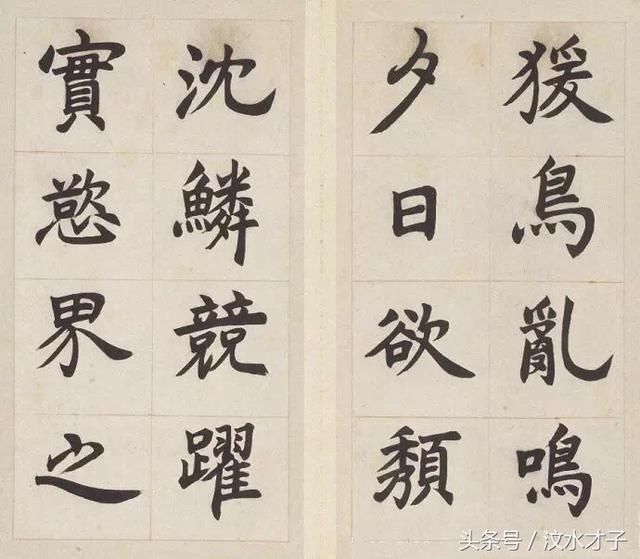 猨鳥亂鳴
夕日欲頽
沈鱗競躍
實慾界之
头条号／汶水才子